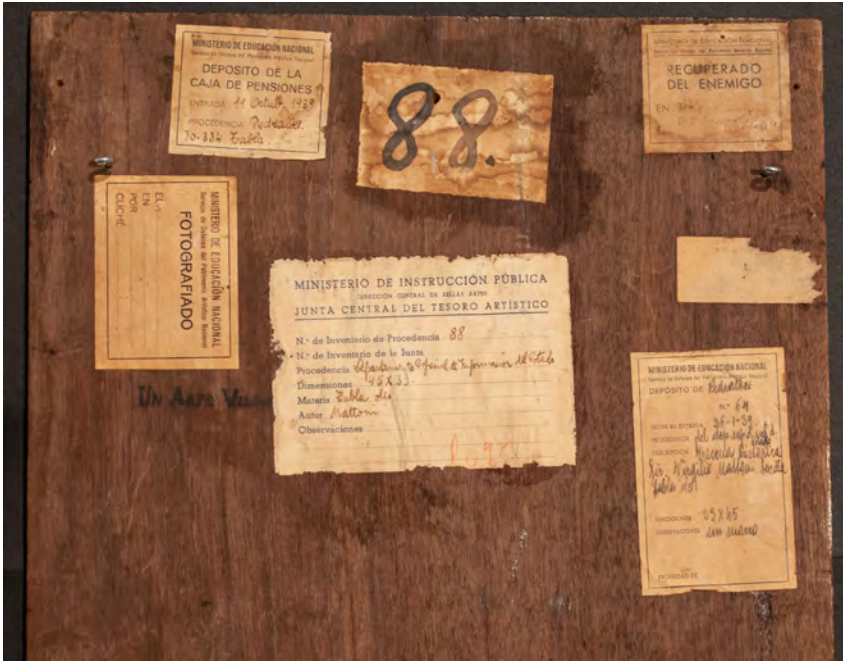 MINISTERIO DE EDUCACIÓN NACIONAL
Servicio de Defensa del Patrimonio Artístico Nacional
DEPOSITO DE LA
CAJA DE PENSIONES
ENTRADA 11 1939
PROCEDENCIA Pedralbes.
30-334 Tabla.
88.
MINISTERIO DE EDUCACIÓN NACIONAL
Servicio de Defensa del Patrimonio Artístico Nacional
RECUPERADO
DEL ENEMIGO
EN
MINISTERIO DE EDUCACIÓN NACIONAL
Servicio de Defensa del Patrimonio Artístico Nacional
FOTOGRAFIADO
EL
EN
POR
CLICHÉ
MINISTERIO DE INSTRUCCIÓN PÚBLICA
DIRECCIÓN GENERAL DE BELLAS ARTES
JUNTA CENTRAL DEL TESORO ARTÍSTICO
N.º de Inventario de Procedencia 88
N.º de Inventario de la Junta
Procedencia de Información del Estado
Dimensiones 45X33
Materia Tabla oleo
Autor Mattoni
Observaciones
UN
MINISTERIO DE EDUCACIÓN NACIONAL
Servicio de Defensa del Patrimonio Artístico Nacional
DEPOSITO DE Pedralbes
N.º 64
FECHA DE ENTRADA 26-1-39
PROCEDENCIA del
DESCRIPCIÓN Escena
Virgilio Mattoni
tabla
DIMENSIONES X45
OBSERVACIONES sin marco
PROPIEDAD DE